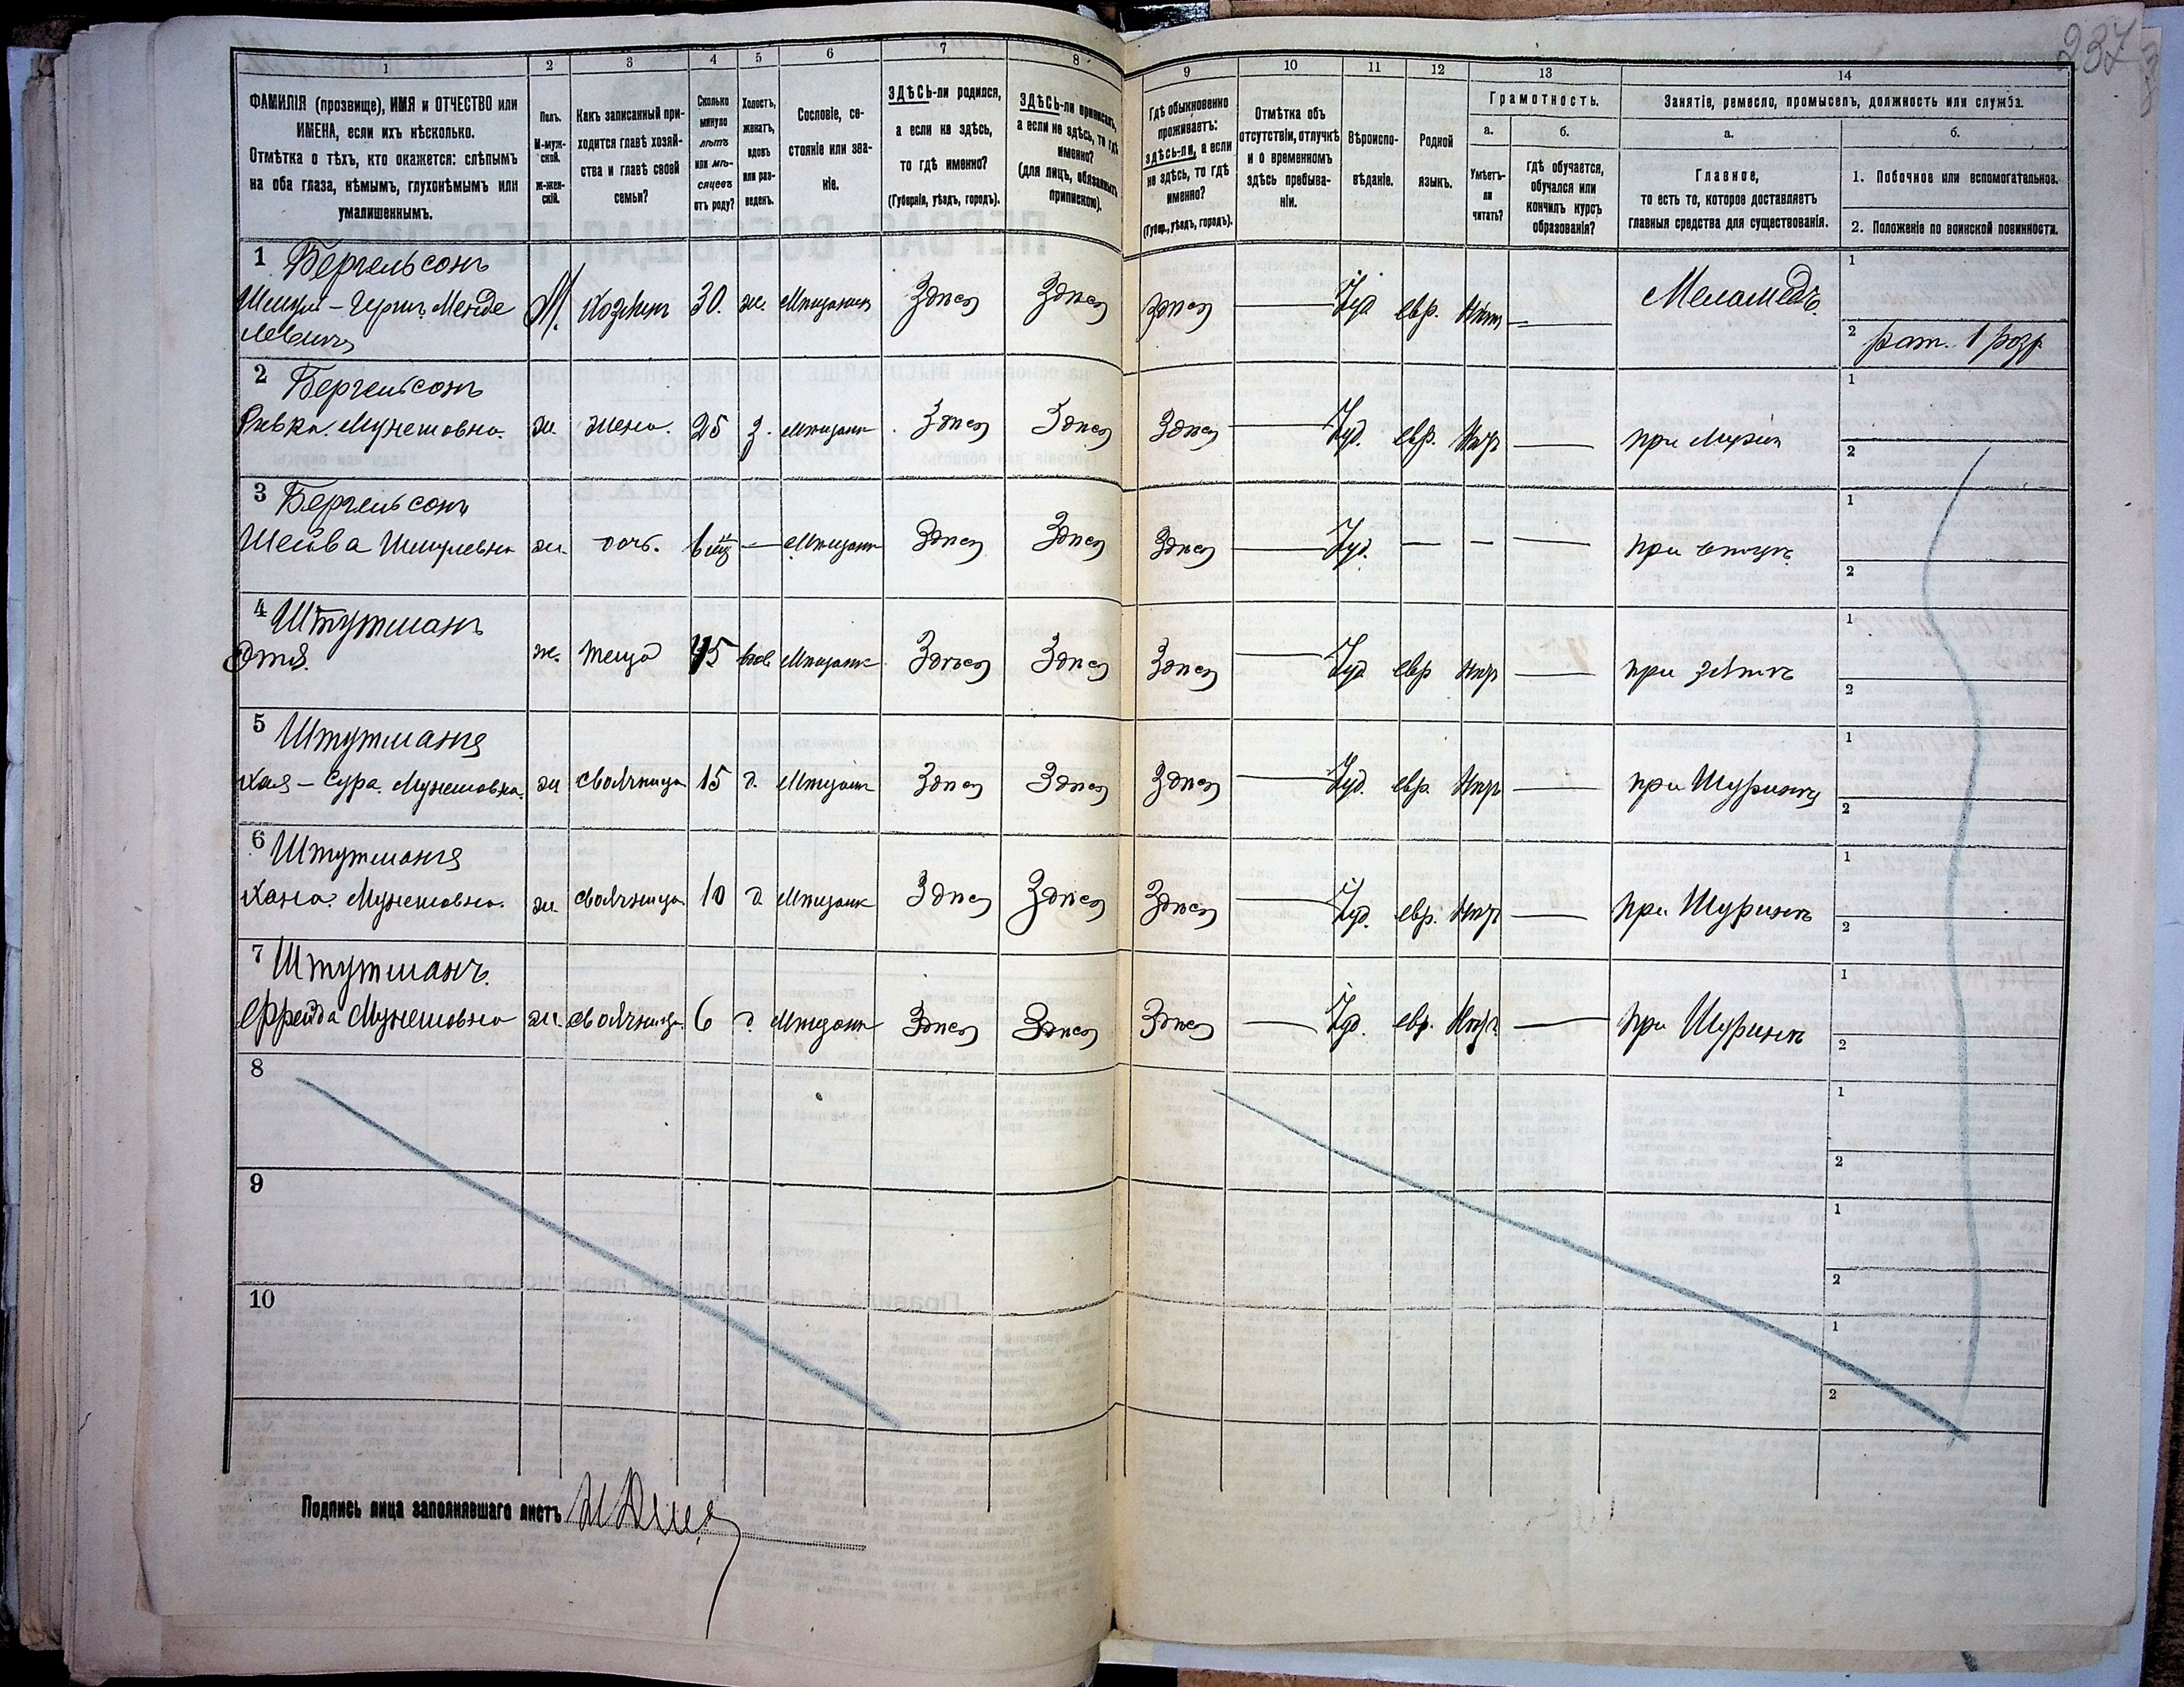 237
1
2
3
4
5
6
7
8
9
10
11
12
13
14
ФАМИЛІЯ (прозвище), ИМЯ и ОТЧЕСТВО или
ИМЕНА, если ихъ нѣсколько.
Отмѣтка о тѣхъ, кто окажется: слѣпымъ
на оба глаза, нѣмымъ, глухонѣмымъ или
умалишеннымъ.
Полъ.
М-муж-
ской.
Ж-жен-
скій.
Какъ записанный при-
ходится главѣ хозяй-
ства и главѣ своей
семьи?
Сколько
минуло
лѣтъ
или мѣ-
сяцевъ
отъ роду?
Холостъ,
женатъ,
вдовъ
или раз-
веденъ.
Сословіе, со-
стояніе или зва-
ніе.
ЗДѢСЬ-ли родился,
а если не здѣсь,
то гдѣ именно?
(Губернія, уѣздъ, городъ).
ЗДѢСЬ-ли приписанъ,
а если не здѣсь, то гдѣ
именно?
(для лицъ, обязанныхъ
припискою).
Гдѣ обыкновенно
проживаетъ:
здѣсь-ли, а если
не здѣсь, то гдѣ
именно?
(Губер., уѣздъ, городъ).
Отмѣтка объ
отсутствіи, отлучкѣ
и о временномъ
здѣсь пребыва-
ніи.
Вѣроиспо-
вѣданіе.
Родной
языкъ.
Грамотность.
а.
Умѣетъ-
ли
читать?
б.
Гдѣ обучается,
обучался или
кончилъ курсъ
образованія?
Занятіе, ремесло, промыселъ, должность или служба.
а.
Главное,
то есть то, которое доставляетъ
главныя средства для существованія.
б.
1. Побочное или вспомогательное.
2. Положеніе по воинской повинности.
1 Бергельсонъ
Шмуль-Герш Менде
левичъ
М. Хозяинъ 30. ж. Мѣщанинъ Здѣсь Здѣсь Здѣсь — Іуд евр. Нѣтъ — Меламедъ
1
2 рат. 1 разр
2 Бергельсонъ
Ривка Мунешовна. ж. жена. 25 з. мѣщанк Здѣсь Здѣсь Здѣсь — Іуд. евр. Нѣтъ — при мужѣ
1
2
3 Бергельсонъ
Шейва Шмулевна ж. дочь. — Мѣщанк Здѣсь Здѣсь Здѣсь — Іуд. — — — при отцѣ
1
2
4 Штутманъ
Этя. ж. теща 45 вдов Мѣщанк Здѣсь Здѣсь Здѣсь — Іуд евр нѣтъ — при зятѣ
1
2
5 Штутманъ
Хая-Сура Мунешовна. ж свояченица 15 д. Мѣщанк Здѣсь Здѣсь Здѣсь — Іуд. евр. Нѣтъ — при Шуринѣ
1
2
6 Штутманъ
Хана Мунешовна. ж. свояченица 10 д Мѣщанк Здѣсь Здѣсь Здѣсь — Іуд. евр. Нѣтъ — при Шуринѣ
1
2
7 Штутманъ.
Фрейда Мунешовна ж. свояченица 6 д Мѣщанк Здѣсь Здѣсь Здѣсь — Іуд. евр. Нѣтъ. — при Шуринѣ
1
2
8
1
2
9
1
2
10
1
2
Подпись лица заполнявшаго листъ